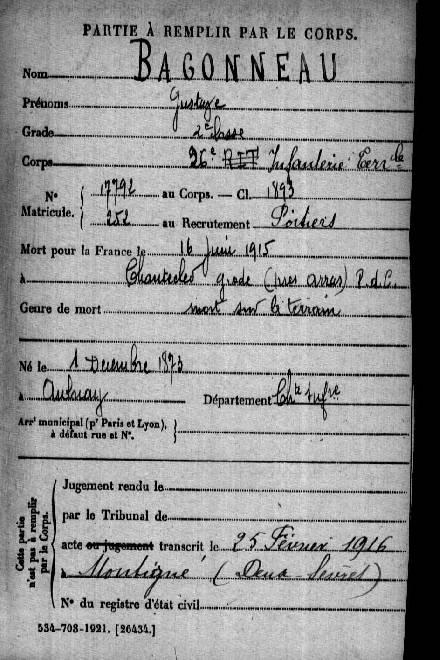 PARTIE À REMPLIR PAR LE CORPS.
Nom BAGONNEAU
Prénoms Gustave
Grade 2e classe
Corps 26e RIT Infanterie Terrle
N° Matricule. 17792 au Corps. — Cl. 1893
252 au Recrutement Poitiers
Mort pour la France le 16 Juin 1915
à Chantecler (près arras) P.d.C.
Genre de mort mort sur le terrain
Né le 1 Décembre 1873
à Aulnay Département Chte Infre
Arrt municipal (pr Paris et Lyon), à défaut rue et N°.
Cette partie n'est pas à remplir par le Corps.
Jugement rendu le
par le Tribunal de
acte ou jugement transcrit le 25 Février 1916
à Montigné (Deux Sèvres)
N° du registre d'état civil
534-708-1921. [26434.]